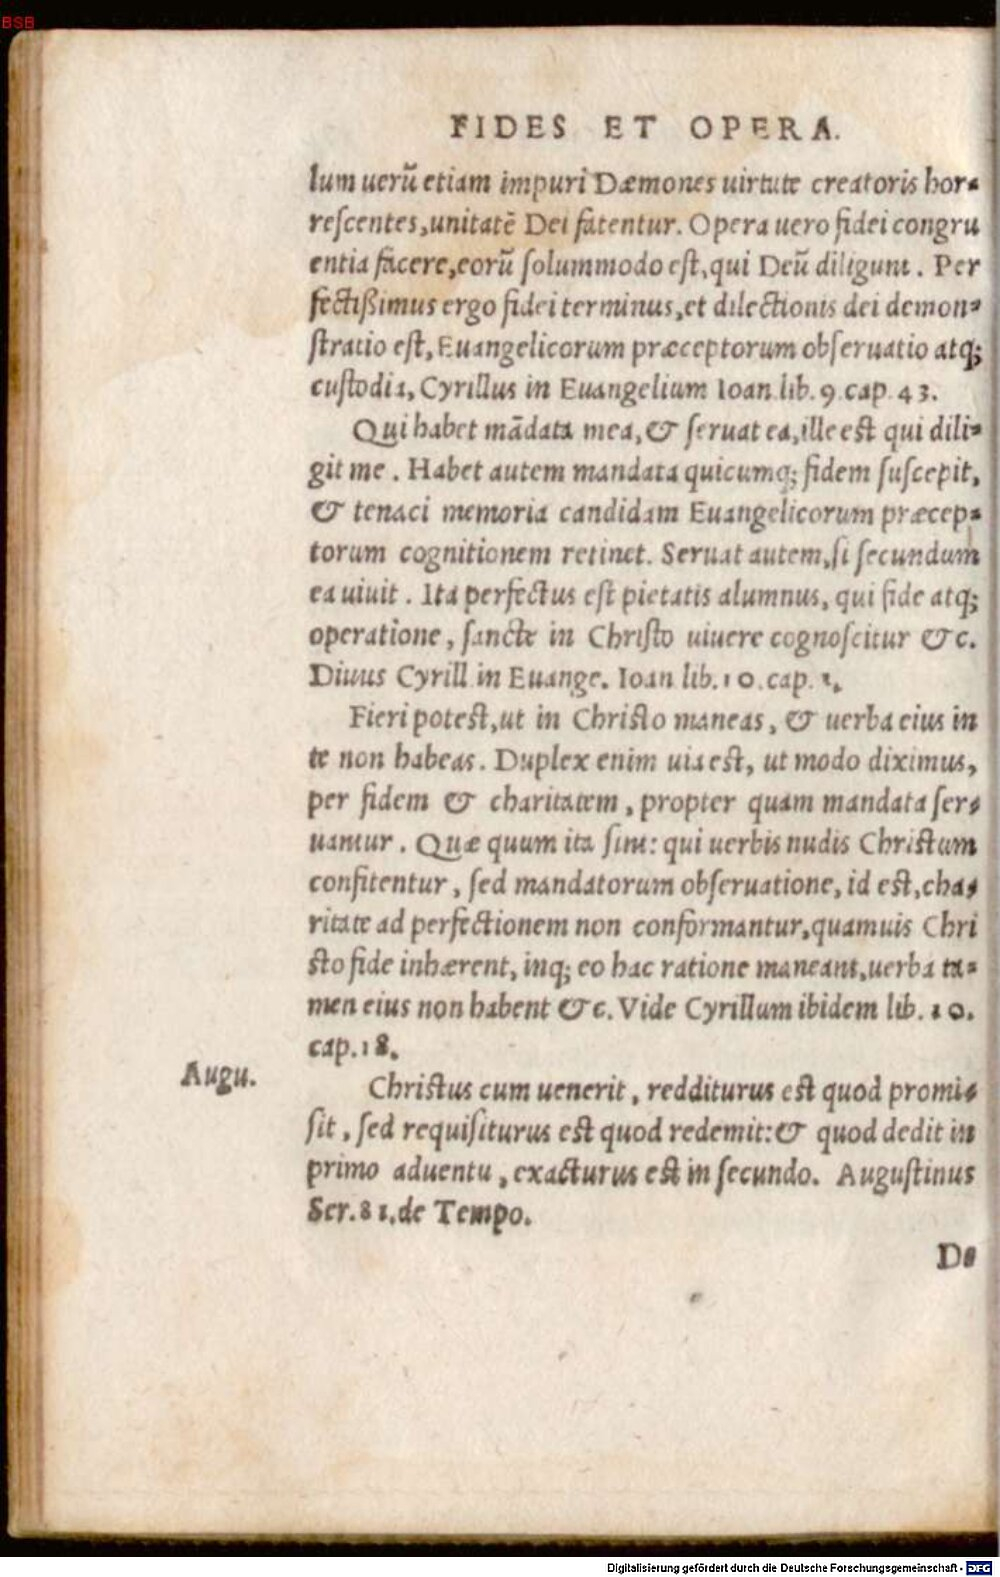 BSB
FIDES ET OPERA.
lum uerũ etiam impuri Dæmones uirtute creatoris hor-
rescentes, unitatẽ Dei fatentur. Opera uero fidei congru
entia facere, eorũ solummodo est, qui Deũ diligunt. Per
fectißimus ergo fidei terminus, et dilectionis dei demon-
stratio est, Euangelicorum præceptorum obseruatio atq;
custodia, Cyrillus in Euangelium Ioan lib. 9 cap. 43.
Qui habet mãdata mea, & seruat ea, ille est qui dili-
git me. Habet autem mandata quicumq; fidem suscepit,
& tenaci memoria candidam Euangelicorum præcep-
torum cognitionem retinet. Seruat autem, si secundum
ea uiuit. Ita perfectus est pietatis alumnus, qui fide atq;
operatione, sancte in Christo uiuere cognoscitur &c.
Diuus Cyrill in Euange. Ioan lib. 10. cap. 1.
Fieri potest, ut in Christo maneas, & uerba eius in
te non habeas. Duplex enim uia est, ut modo diximus,
per fidem & charitatem, propter quam mandata ser-
uantur. Quæ quum ita sint: qui uerbis nudis Christum
confitentur, sed mandatorum obseruatione, id est, cha-
ritate ad perfectionem non conformantur, quamuis Chri
sto fide inhærent, inq; eo hac ratione maneant, uerba ta-
men eius non habent &c. Vide Cyrillum ibidem lib. 10.
cap. 18.
Augu.
Christus cum uenerit, redditurus est quod promi-
sit, sed requisiturus est quod redemit: & quod dedit in
primo aduentu, exacturus est in secundo. Augustinus
Ser. 81. de Tempo.
De
Digitalisierung gefördert durch die Deutsche Forschungsgemeinschaft - DFG